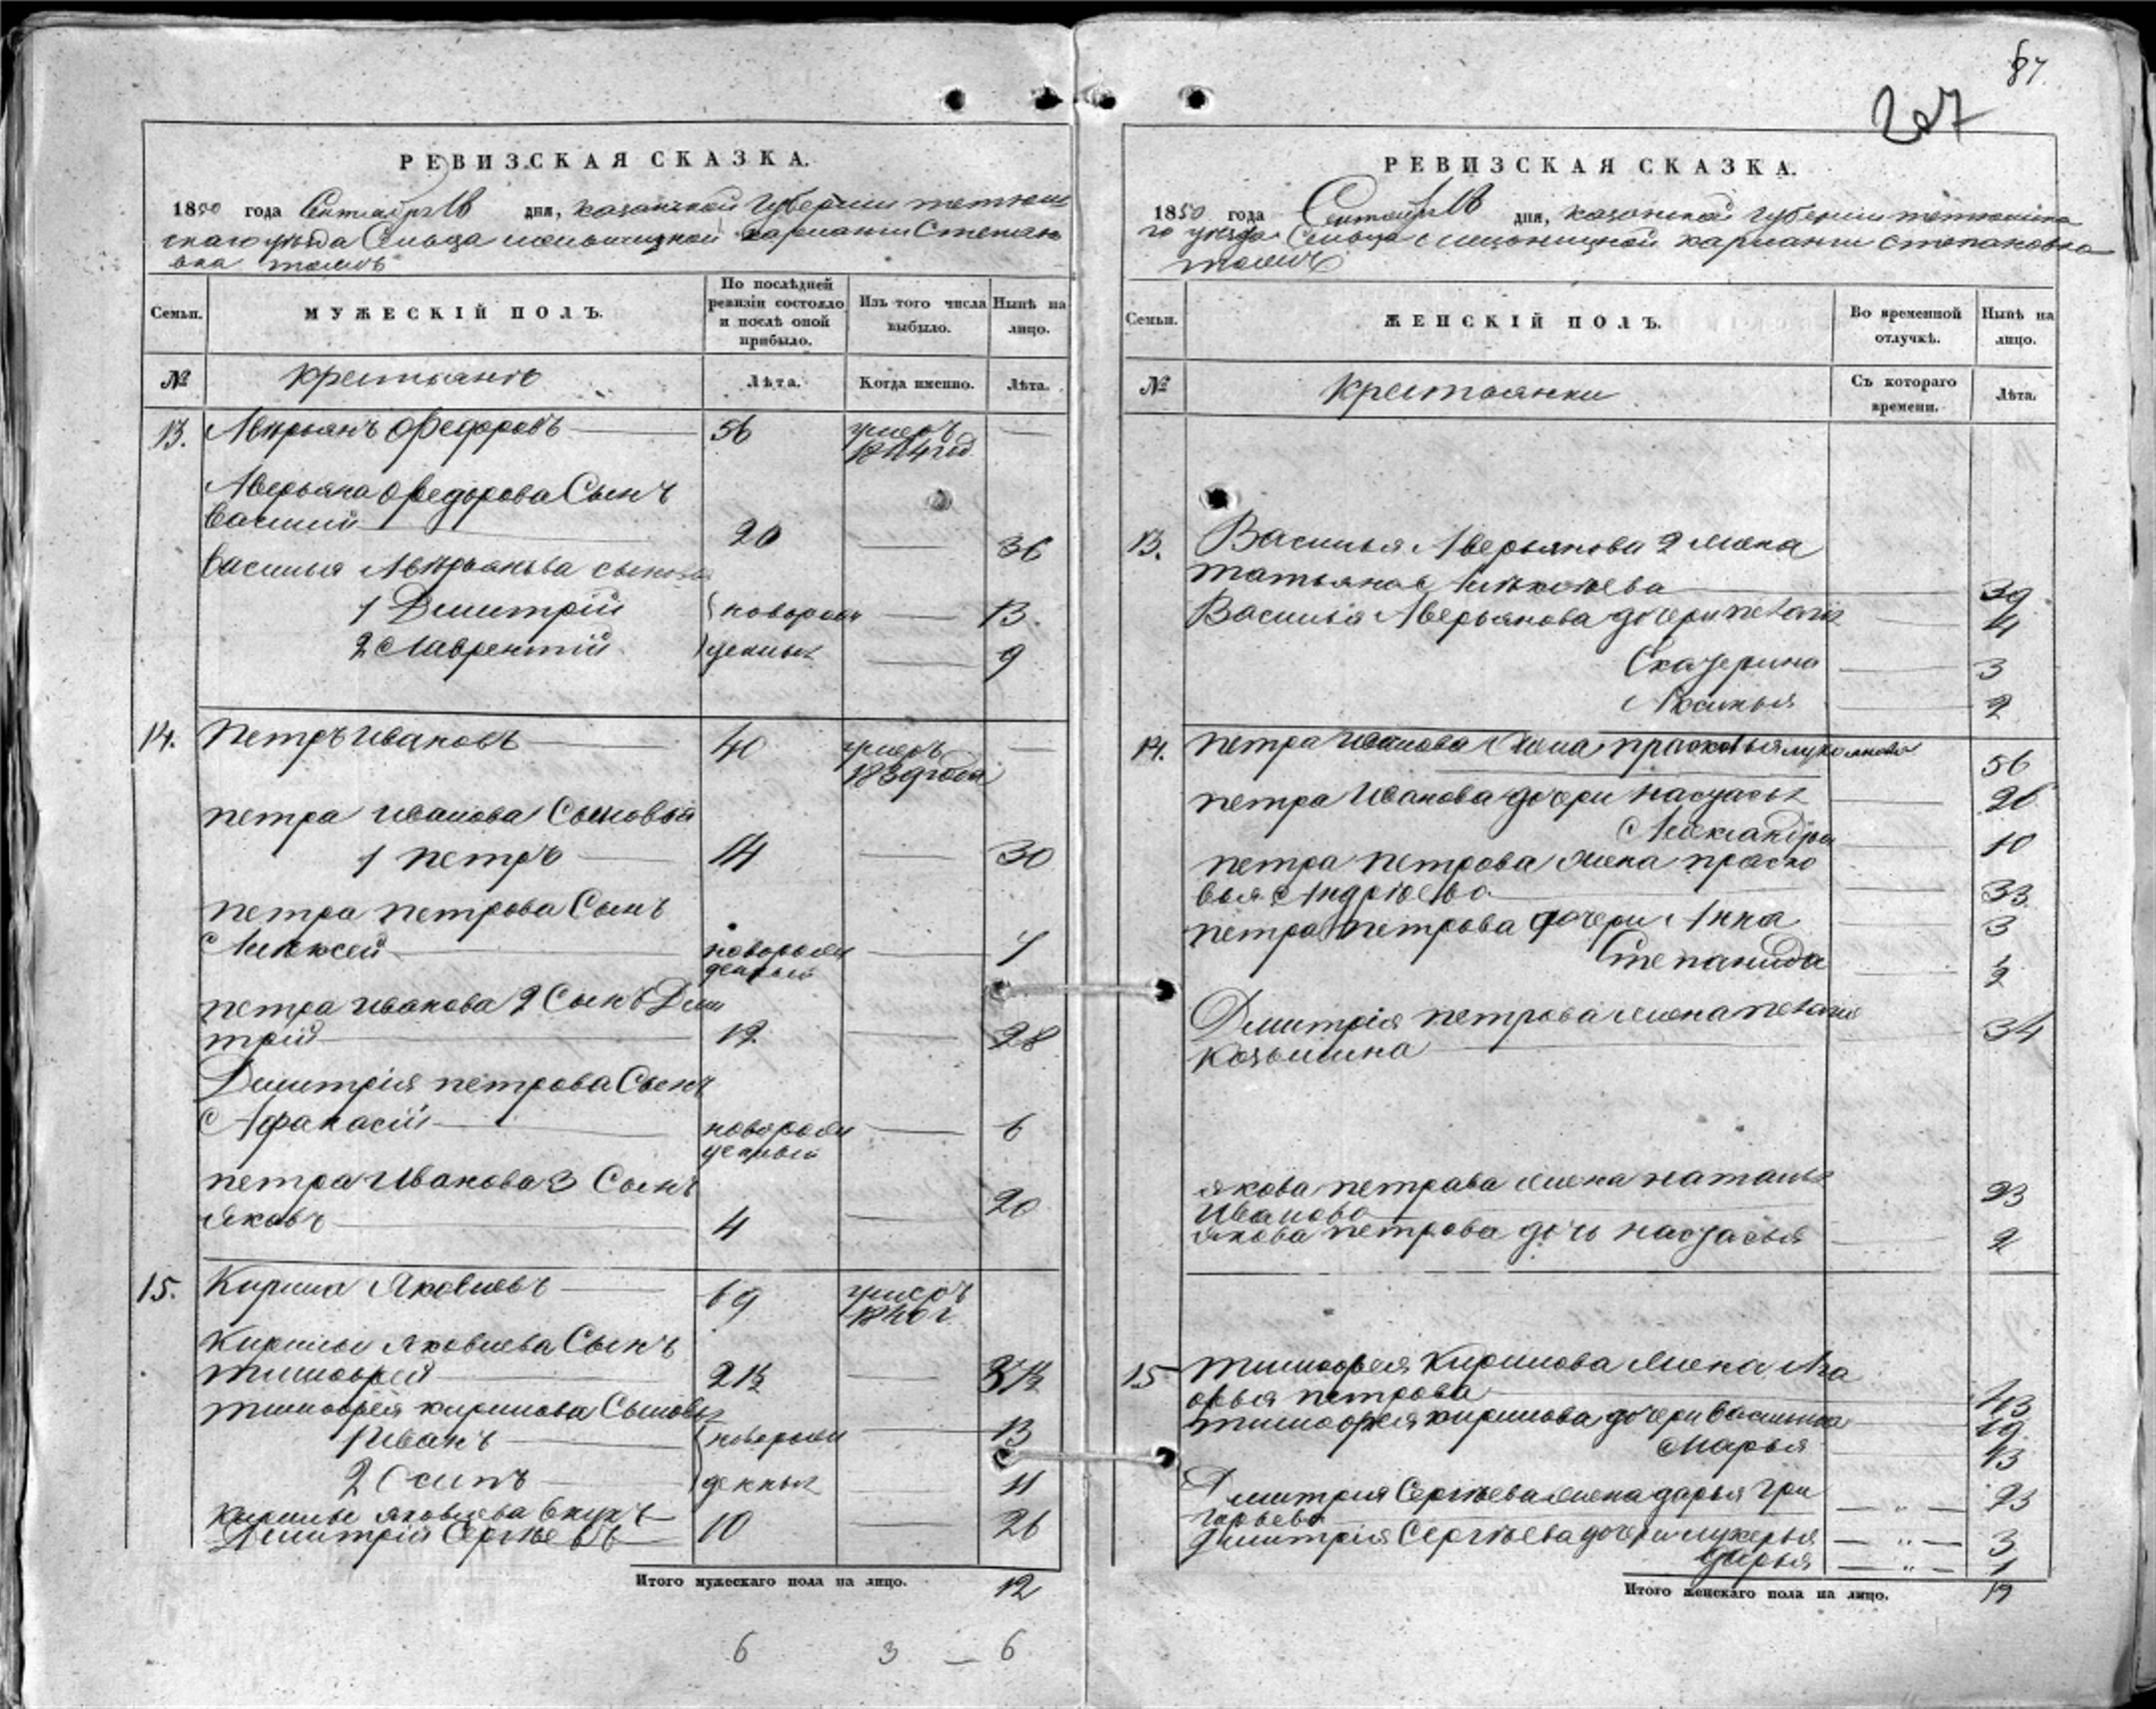 87
207
РЕВИЗСКАЯ СКАЗКА.
1850 года Сентября 18 дня, казанской Губернии тетюш
скаго уезда Сельца карланги Степан
овка тожъ
Семьи.
МУЖЕСКІЙ ПОЛЪ.
По послѣдней ревизіи состояло и послѣ оной прибыло.
Изъ того числа выбыло.
Нынѣ на лицо.
№
крестьянъ
Лѣта.
Когда именно.
Лѣта.
13. Аверьянъ Федоровъ 56 умеръ —
1844 год
Аверьяна Федорова Сынъ
Василий 20 — 36
Василья Аверьянова сыновья
1 Дмитрій новорож — 13.
2 Лаврентій денных — 9
14. Петръ Ивановъ 40 умеръ —
1839 года
петра Иванова Сыновья
1 петръ 14 — 30
петра петрова Сынъ
Алексей новорож — 7
денный
петра Иванова 2 Сынъ Дми
трій 12. — 28
Дмитрія петрова Сынъ
Афанасій новорож — 6
денный
петра Иванова 3 Сынъ
Яковъ 4 — 20
15. Кирила Яковлевъ 69 умеръ
1840 г
Кирилы Яковлева Сынъ
тимофей —
тимофея кирилова Сыновья
1 Иванъ новорож — 13
2 Осипъ денных — 11
Кирилы Яковлева внукъ
Дмитрій Сергѣевъ 10 — 26
Итого мужескаго пола на лицо. 12
6 3 — 6
РЕВИЗСКАЯ СКАЗКА.
1850 года Сентября 18 дня, казанской губернии тетюшска
го уезда Сельца карланги степановка
тожъ
Семьи.
ЖЕНСКІЙ ПОЛЪ.
Во временной отлучкѣ.
Нынѣ на лицо.
№
крестьянки
Съ котораго времени.
Лѣта.
13. Василья Аверьянова 2 жена
татьяна 39
Василья Аверьянова дочери пелагия 4
Екатерина 3
Аксинья 2
14. петра Иванова жена прасковья лукоянова 56
петра Иванова дочери настасья 26
Александра 10
петра петрова жена праско
вья Андрѣева 33.
петра петрова дочери Анна 3
Степанида ½
Дмитрія петрова жена пелагия 34
козьмина
якова петрава жена наталья 23
Иванова
якова петрова дочь настасья 2
15 тимофея Кирилова жена Ага
фья петрова 43
тимофея кирилова дочери василиса 19.
Марья 13
Дмитрия Сергѣева жена дарья гри — „ — 23
горьева
Дмитрія Сергѣева дочери лукерья — „ — 3
дарья — „ — 1
Итого женскаго пола на лицо. 17